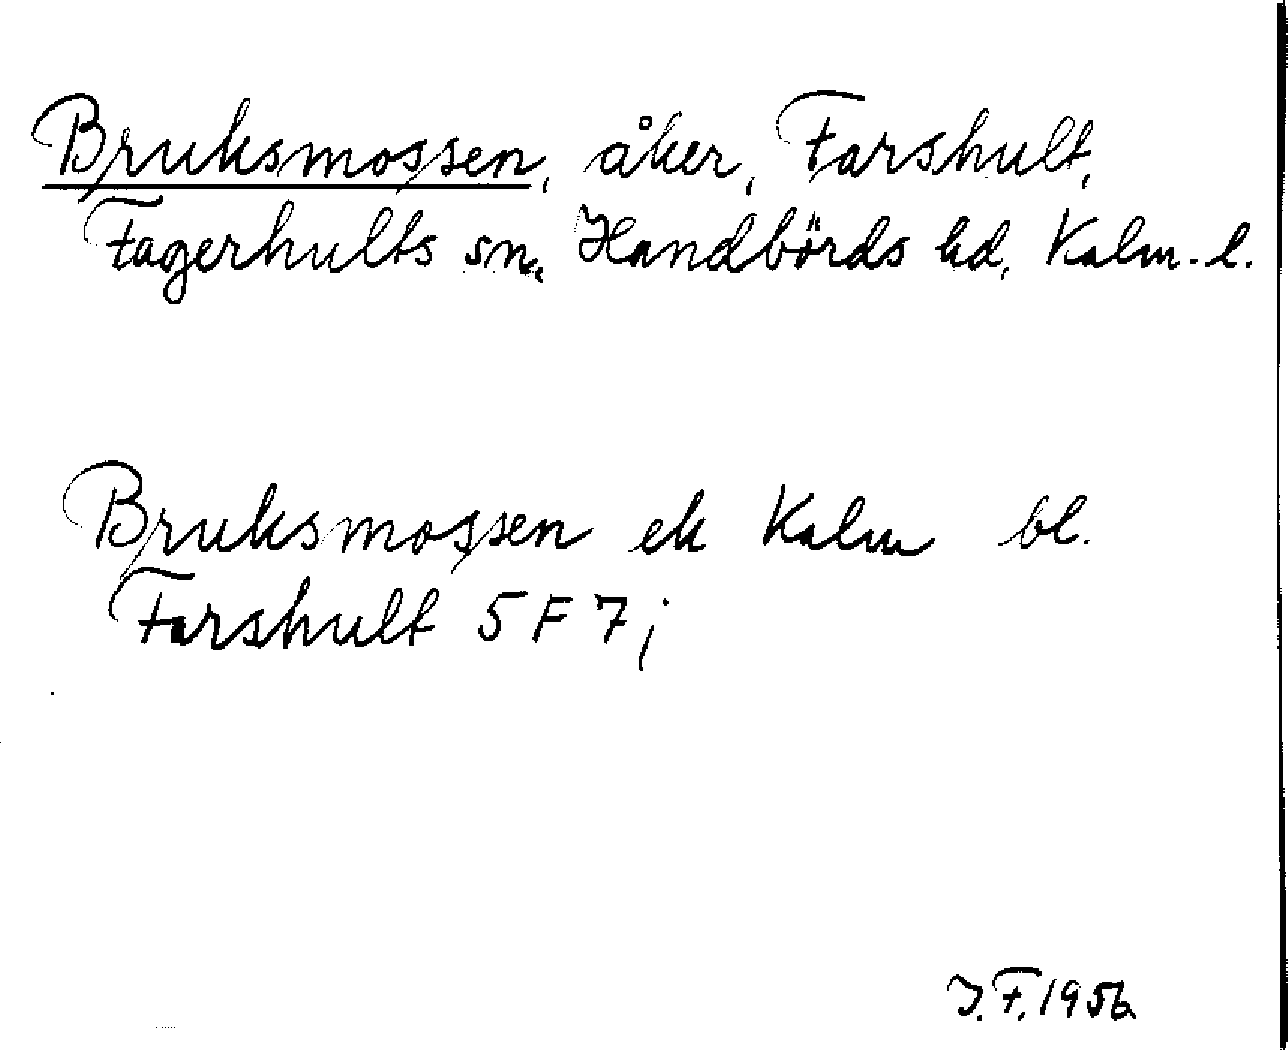 Bruksmossen, åker, Farshult,
Fagerhults sn, Handbörds hd, Kalm. l.
Bruksmossen ek Kalm bl.
Farshult 5 F 7 j
J. F. 1956